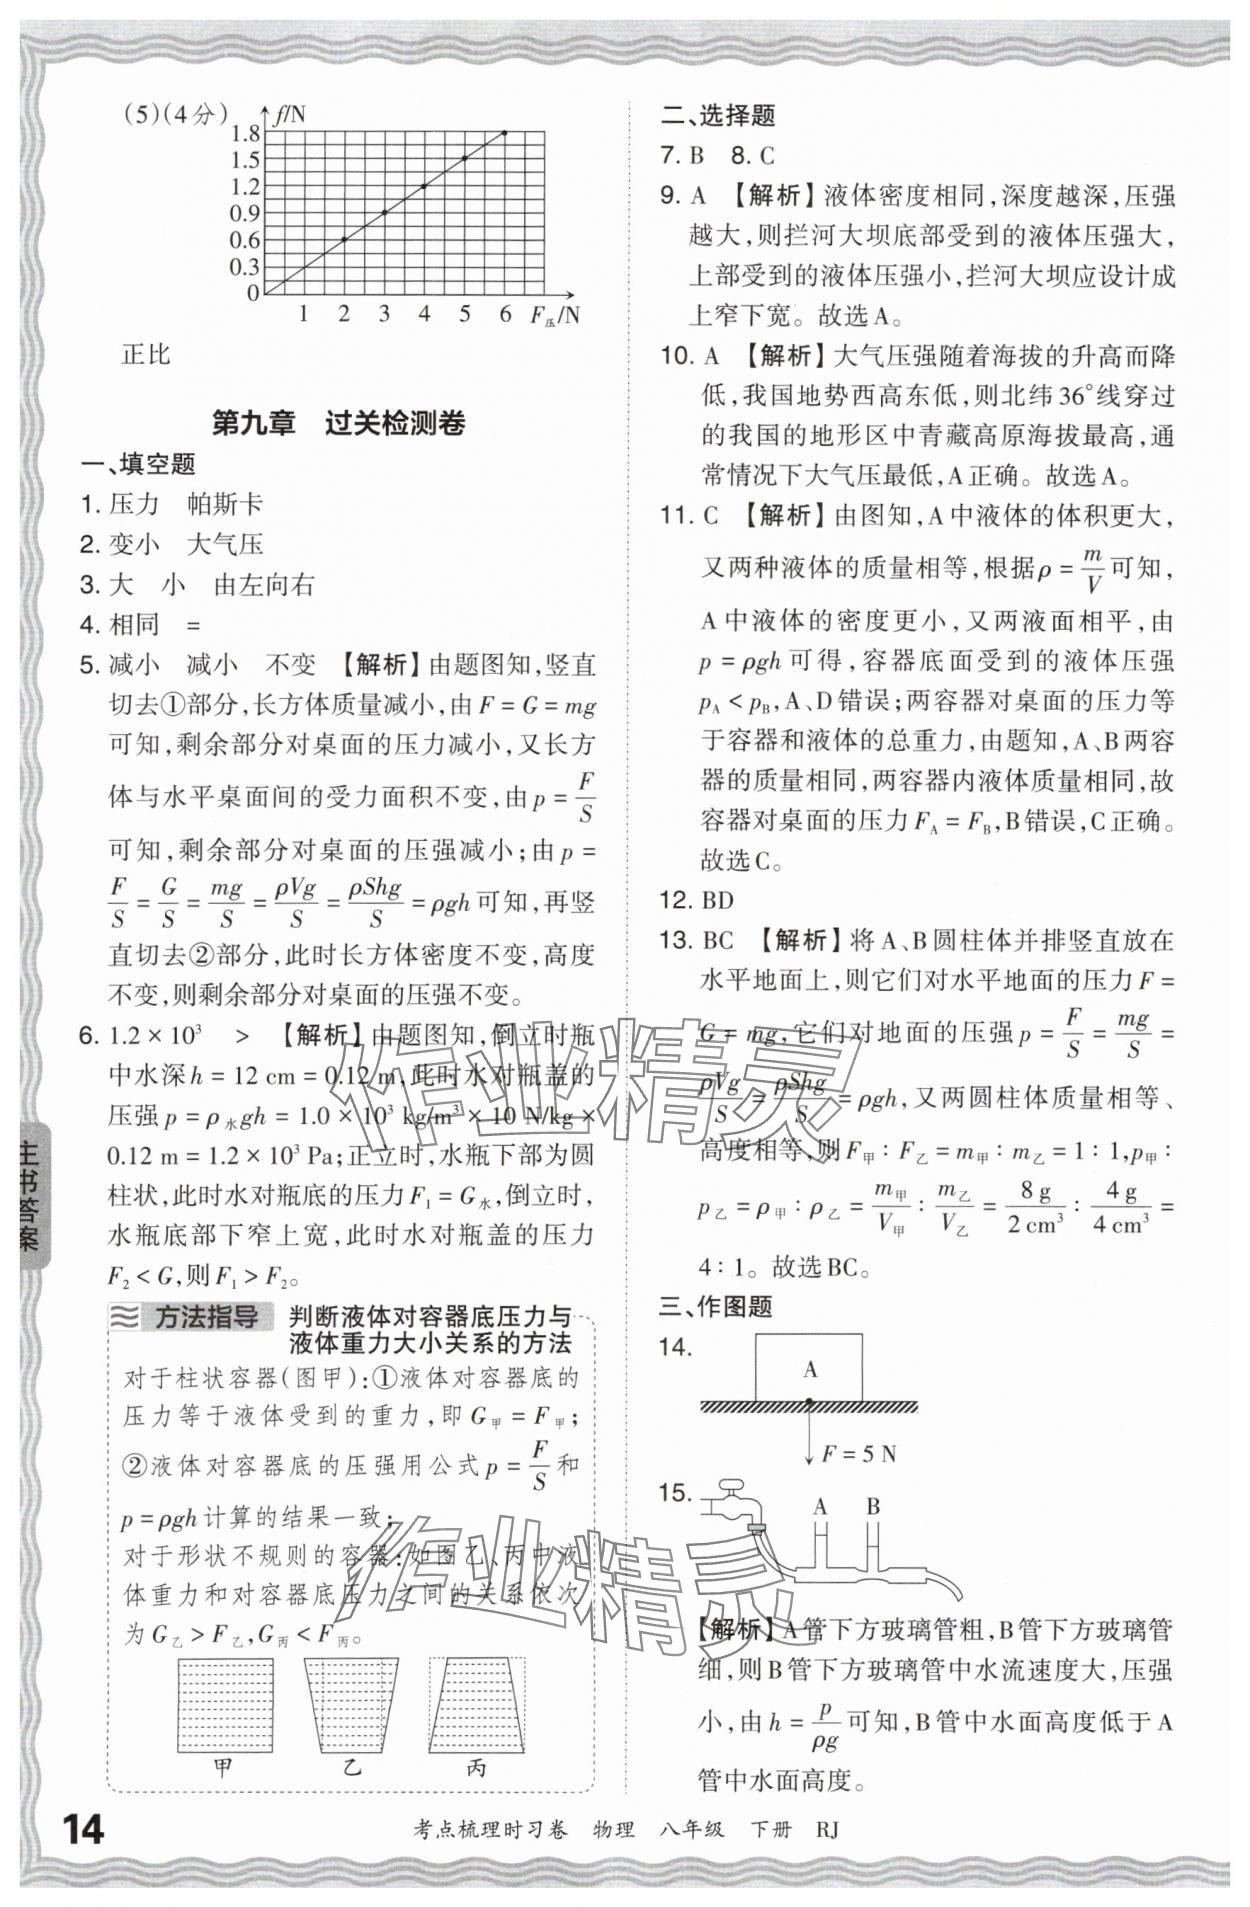 (5)(4分)
f/N
1.8
1.5
1.2
0.9
0.6
0.3
0
1 2 3 4 5 6 F压/N
正比
第九章 过关检测卷
一、填空题
1. 压力 帕斯卡
2. 变小 大气压
3. 大 小 由左向右
4. 相同 =
5. 减小 减小 不变 【解析】由题图知,竖直
切去①部分,长方体质量减小,由 F = G = mg
可知,剩余部分对桌面的压力减小,又长方
体与水平桌面间的受力面积不变,由 p = F/S
可知,剩余部分对桌面的压强减小;由 p =
F/S = G/S = mg/S = ρVg/S = ρShg/S = ρgh 可知,再竖
直切去②部分,此时长方体密度不变,高度
不变,则剩余部分对桌面的压强不变。
6. 1.2 × 10³ > 【解析】由题图知,倒立时瓶
中水深 h = 12 cm = 0.12 m,此时水对瓶盖的
压强 p = ρ水gh = 1.0 × 10³ kg/m³ × 10 N/kg ×
0.12 m = 1.2 × 10³ Pa;正立时,水瓶下部为圆
柱状,此时水对瓶底的压力 F₁ = G水,倒立时,
水瓶底部下窄上宽,此时水对瓶盖的压力
F₂ < G,则 F₁ > F₂。
方法指导 判断液体对容器底压力与
液体重力大小关系的方法
对于柱状容器(图甲):①液体对容器底的
压力等于液体受到的重力,即 G甲 = F甲;
②液体对容器底的压强用公式 p = F/S 和
p = ρgh 计算的结果一致;
对于形状不规则的容器:如图乙、丙中液
体重力和对容器底压力之间的关系依次
为 G乙 > F乙,G丙 < F丙。
甲 乙 丙
二、选择题
7. B 8. C
9. A 【解析】液体密度相同,深度越深,压强
越大,则拦河大坝底部受到的液体压强大,
上部受到的液体压强小,拦河大坝应设计成
上窄下宽。故选A。
10. A 【解析】大气压强随着海拔的升高而降
低,我国地势西高东低,则北纬36°线穿过
的我国的地形区中青藏高原海拔最高,通
常情况下大气压最低,A正确。故选A。
11. C 【解析】由图知,A中液体的体积更大,
又两种液体的质量相等,根据 ρ = m/V 可知,
A中液体的密度更小,又两液面相平,由
p = ρgh 可得,容器底面受到的液体压强
pA < pB,A、D错误;两容器对桌面的压力等
于容器和液体的总重力,由题知,A、B两容
器的质量相同,两容器内液体质量相同,故
容器对桌面的压力 FA = FB,B错误,C正确。
故选C。
12. BD
13. BC 【解析】将A、B圆柱体并排竖直放在
水平地面上,则它们对水平地面的压力 F =
G = mg,它们对地面的压强 p = F/S = mg/S =
ρVg/S = ρShg/S = ρgh,又两圆柱体质量相等、
高度相等,则 F甲∶F乙 = m甲∶m乙 = 1∶1,p甲∶
p乙 = ρ甲∶ρ乙 = m甲/V甲∶m乙/V乙 = 8 g/2 cm³∶4 g/4 cm³ =
4∶1。故选BC。
三、作图题
14.
A
F = 5 N
15.
A B
【解析】A管下方玻璃管粗,B管下方玻璃管
细,则B管下方玻璃管中水流速度大,压强
小,由 h = p/ρg 可知,B管中水面高度低于A
管中水面高度。
主书答案
14
考点梳理时习卷 物理 八年级 下册 RJ
作业精灵
作业精灵